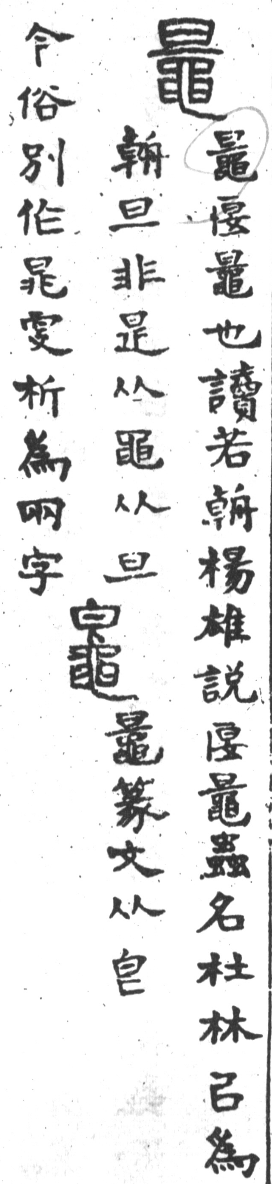 鼂
鼂匽鼂也讀若朝楊雄説匽鼂蟲名杜林㠯爲
朝旦非是从黽从旦
鼂
鼂篆文从皀
今俗別作晁析爲兩字